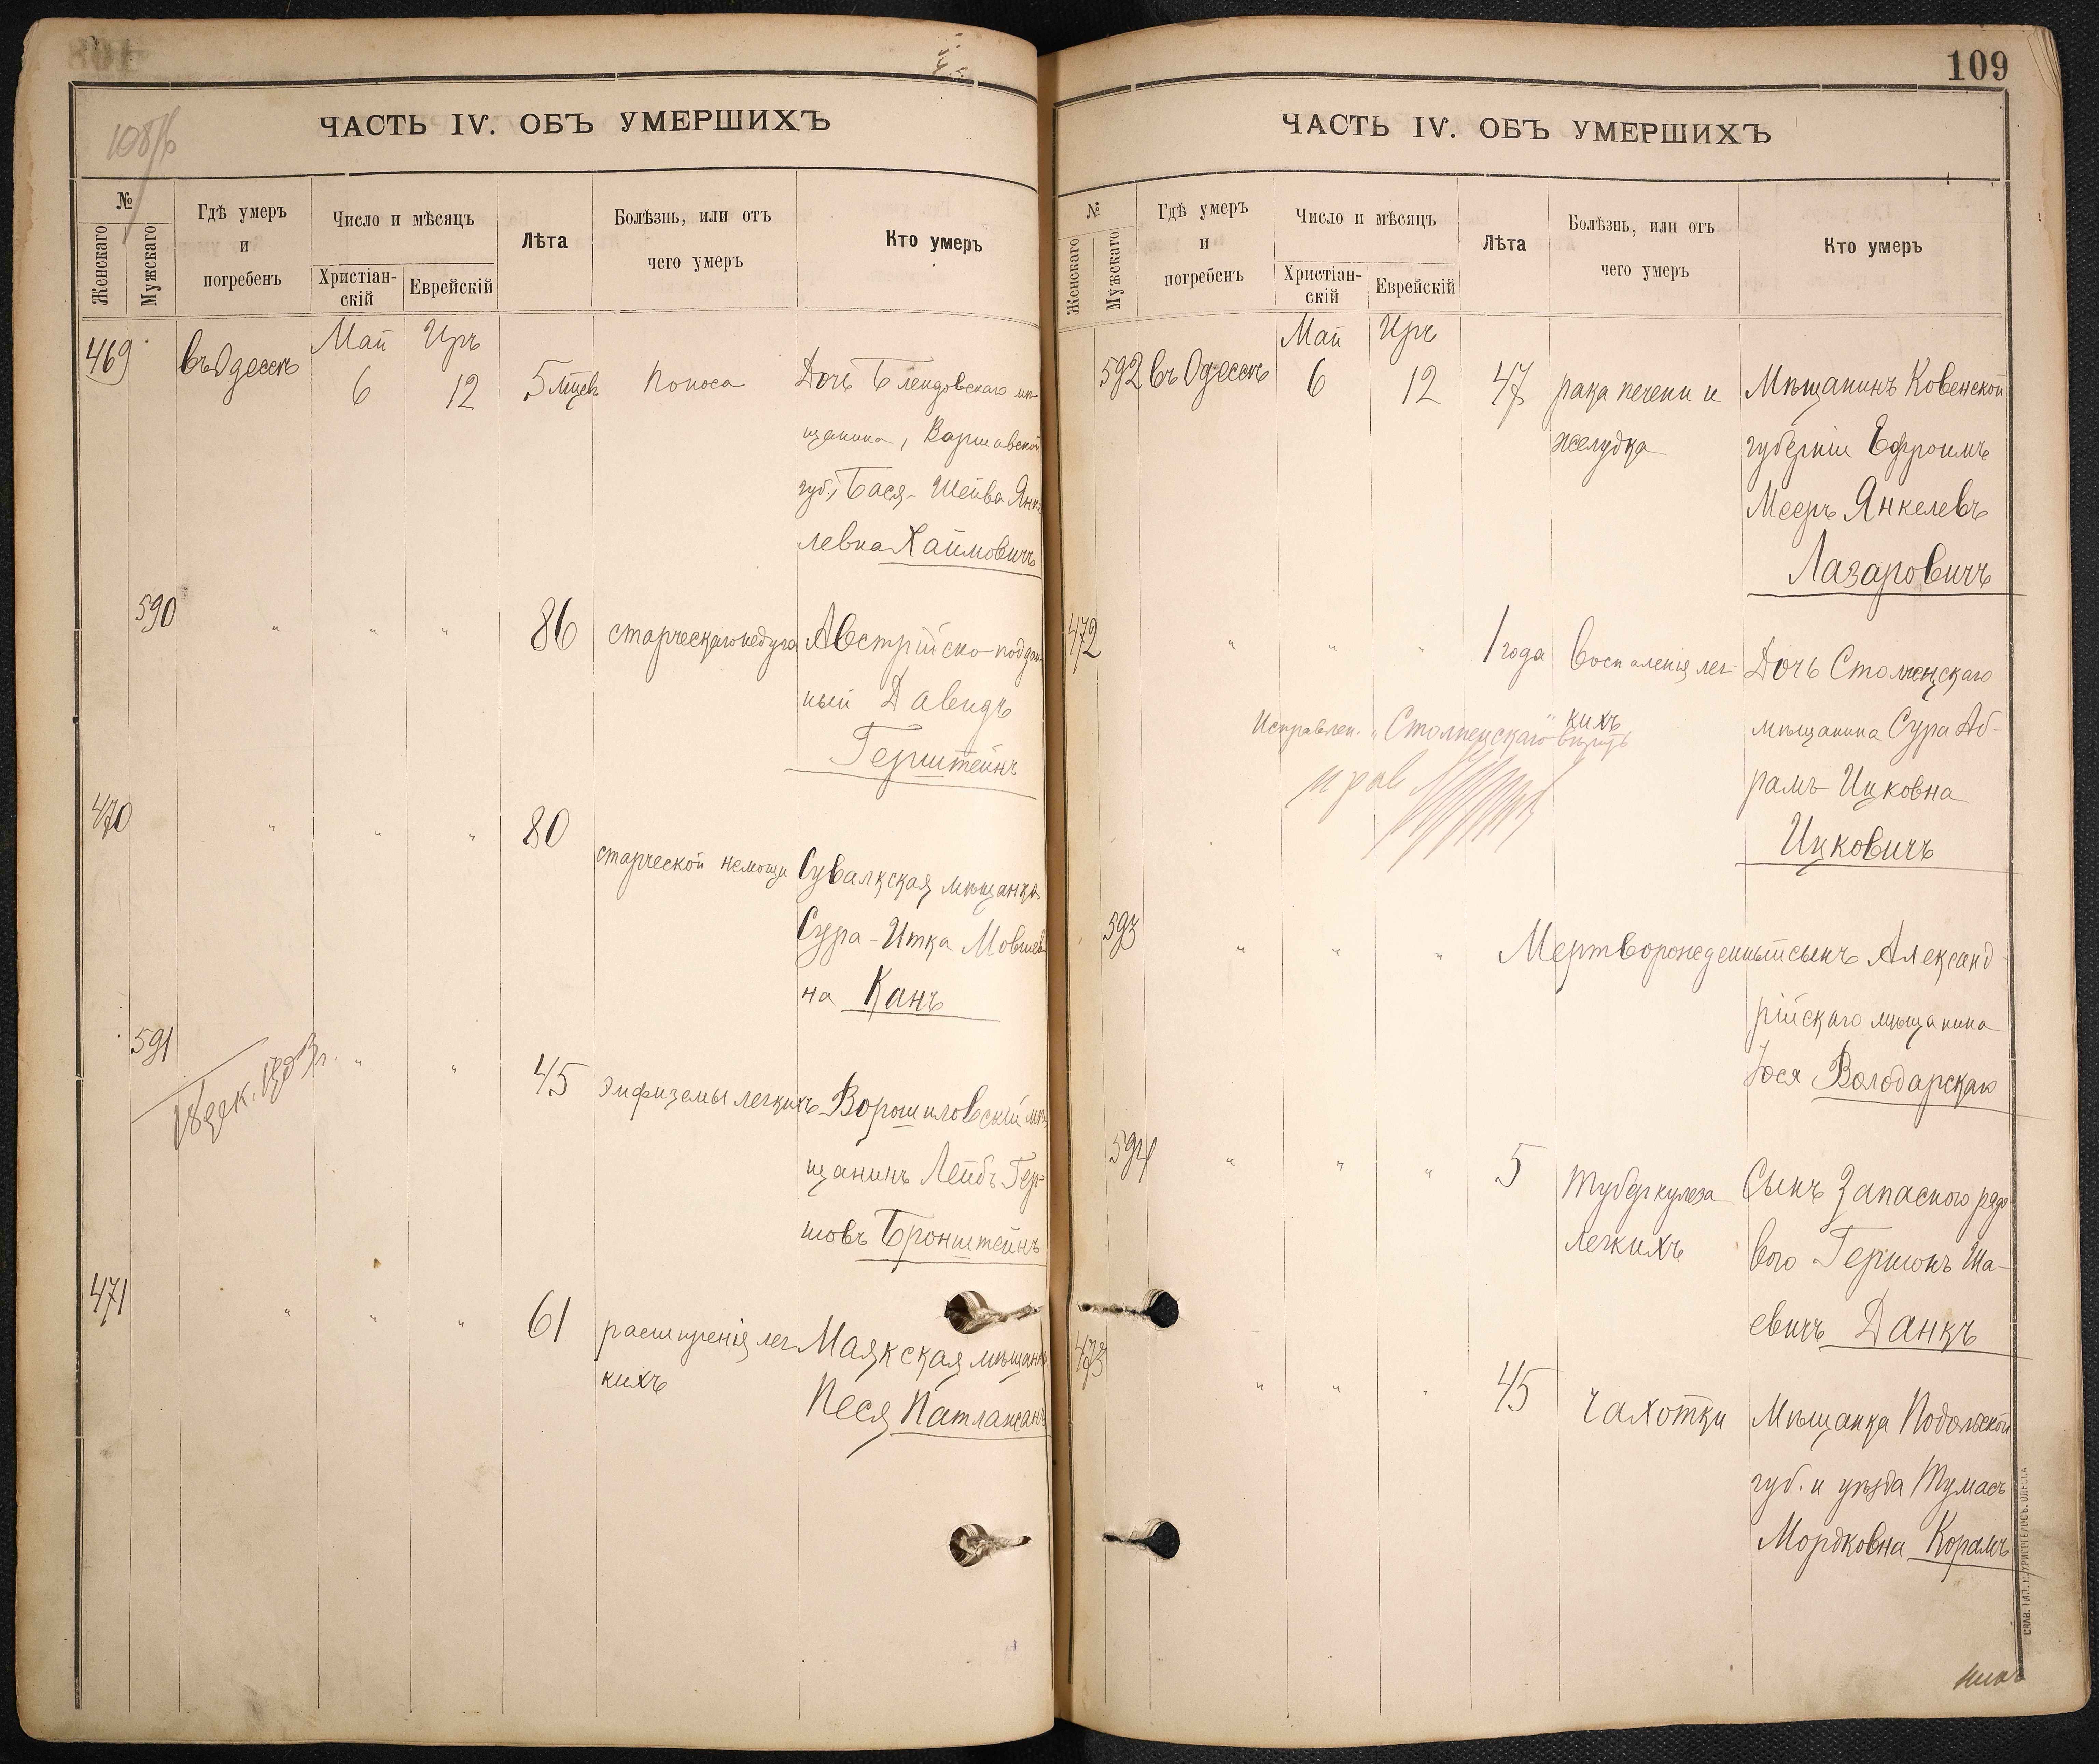 109
108/б
ЧАСТЬ IV. ОБЪ УМЕРШИХЪ
№
Женскаго
Мужскаго
Гдѣ умеръ
и
погребенъ
Число и мѣсяцъ
Христіан-
скій
Еврейскій
Лѣта
Болѣзнь, или отъ
чего умеръ
Кто умеръ
Май Иръ
469 въ Одессѣ 6 12 5 мѣсяц. поноса Дочь Блендовскаго мѣ-
щанина, Варшавской
губ., Бася-Шейва Янке
левна Хаимовичъ
590 " " " 86 старческаго недуга Австрійско-поддан-
ный Давидъ
Герштейнъ
470 " " " 80
старческой немощи Сувалкская мѣщанка
Сура-Итка Мовшев
на Канъ
591 18 дек. 1893 г. " " 45 Эмфиземы легкихъ Ворошиловскій мѣ
щанинъ Лейбъ Гер-
шовъ Бронштейнъ
471 " " " 61 расширенія лег Маякская мѣщанка
кихъ
Песя Патлажанъ
ЧАСТЬ IV. ОБЪ УМЕРШИХЪ
№
Женскаго
Мужскаго
Гдѣ умеръ
и
погребенъ
Число и мѣсяцъ
Христіан-
скій
Еврейскій
Лѣта
Болѣзнь, или отъ
чего умеръ
Кто умеръ
Май Иръ
592 въ Одессѣ 6 12 47 рака печени и Мѣщанинъ Ковенской
желудка губерніи Ефроимъ
Мееръ Янкелевъ
Лазаровичъ
472 " " " 1 года воспаленія лег- Дочь Столпенскаго
кихъ мѣщанина Сура Аб-
Исправлен. „Столпенскаго"
рамъ Ицковна
Ицковичъ
593 " " " Мертворожденный сынъ Александ-
рійскаго мѣщанина
Іося Володарскаго
594 " " " 5 туберкулеза Сынъ запаснаго рядо
легкихъ вого Гершонъ Ша-
евичъ Данкъ
473 " " " 45 чахотки Мѣщанка Подольской
губ. и уѣзда
Мордковна Корамъ